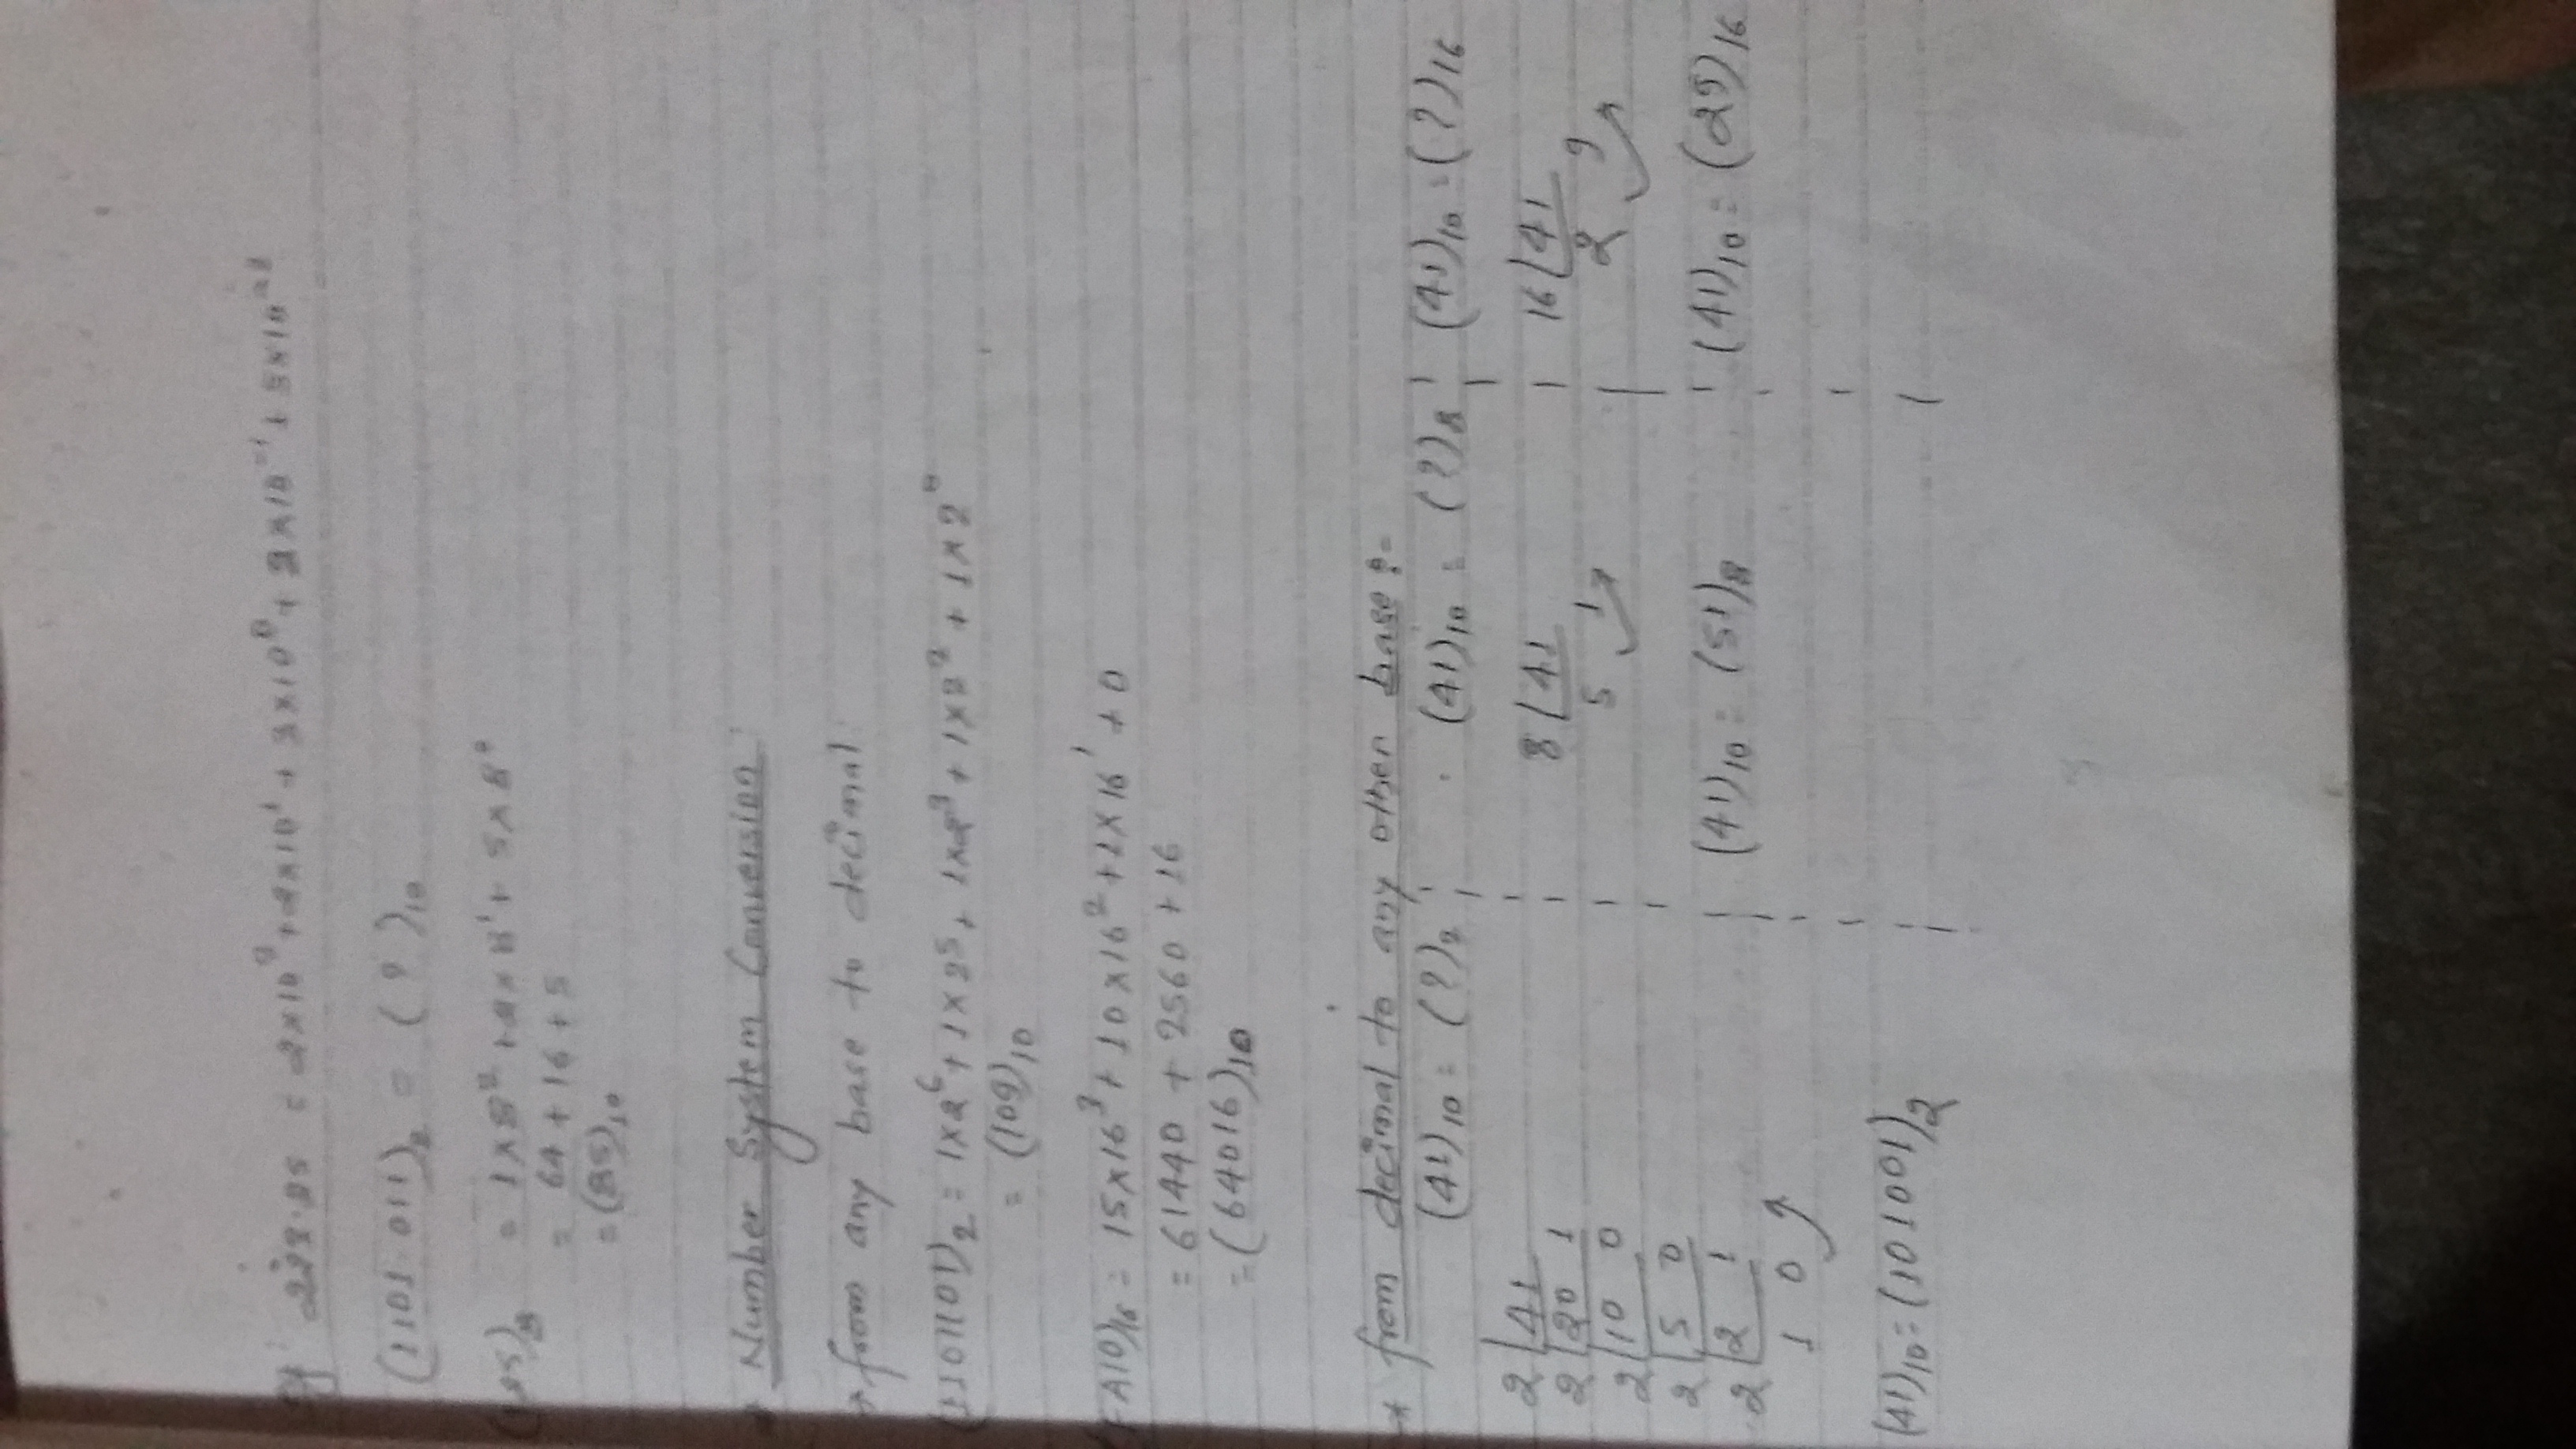 223.25 = 2×10² + 2×10¹ + 3×10⁰ + 2×10⁻¹ + 5×10⁻²
(1101.011)₂ = ( ? )₁₀
25)₈ = 1×8² + 2×8¹ + 5×8⁰
= 64 + 16 + 5
= (85)₁₀
Number System Conversion
→ from any base to decimal:
(1101101)₂ = 1×2⁶ + 1×2⁵ + 1×2³ + 1×2² + 1×2⁰
= (109)₁₀
A10)₁₆ = 15×16³ + 10×16² + 1×16¹ + 0
= 61440 + 2560 + 16
= (64016)₁₀
* from decimal to any other base :-
(41)₁₀ = (?)₂ (41)₁₀ = (?)₈ (41)₁₀ = (?)₁₆
2 | 41 8 | 41 16 | 41
2 | 20 1 5 1 2 9
2 | 10 0
2 | 5 0
2 | 2 1 (41)₁₀ = (51)₈ (41)₁₀ = (29)₁₆
1 0
(41)₁₀ = (101001)₂